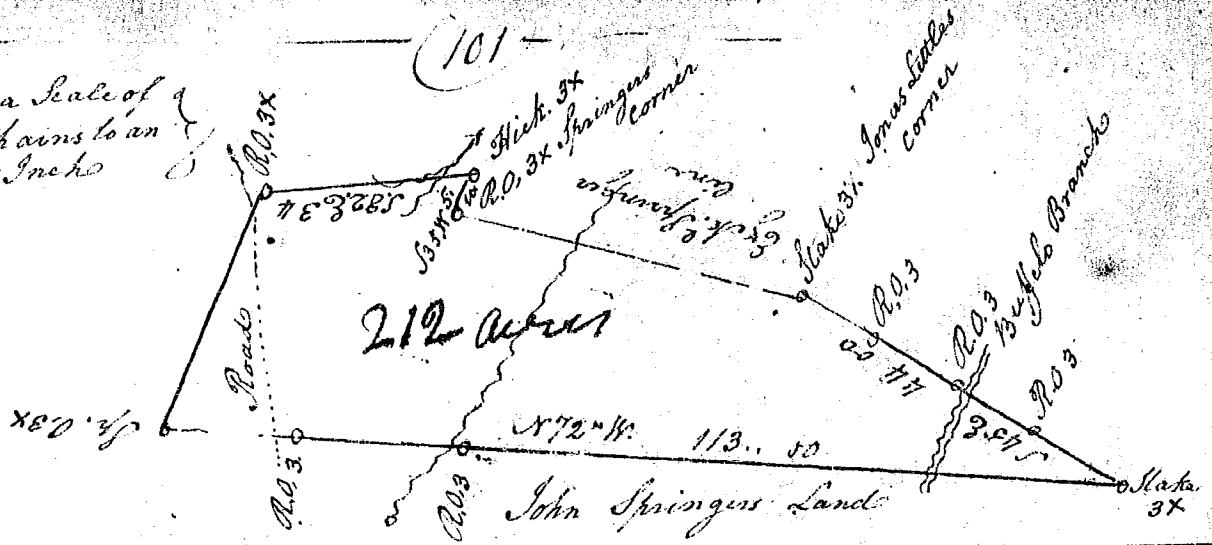 101
a Scale of 9
hains to an
Inch
R.O, 3X
Hick. 3X
R.O, 3X Springers
Corner
S82E 34
S35W 5.
Springer
line
Stake 3X Jonas Littles
Corner
R.O, 3
R.O. 3
Buffelo Branch
R.O 3
44 00
S45E
212 acres
Road
O.3X
R.O, 3.
R.O, 3
N72"W. 113.. 50
John Springers Land
Stake
3X